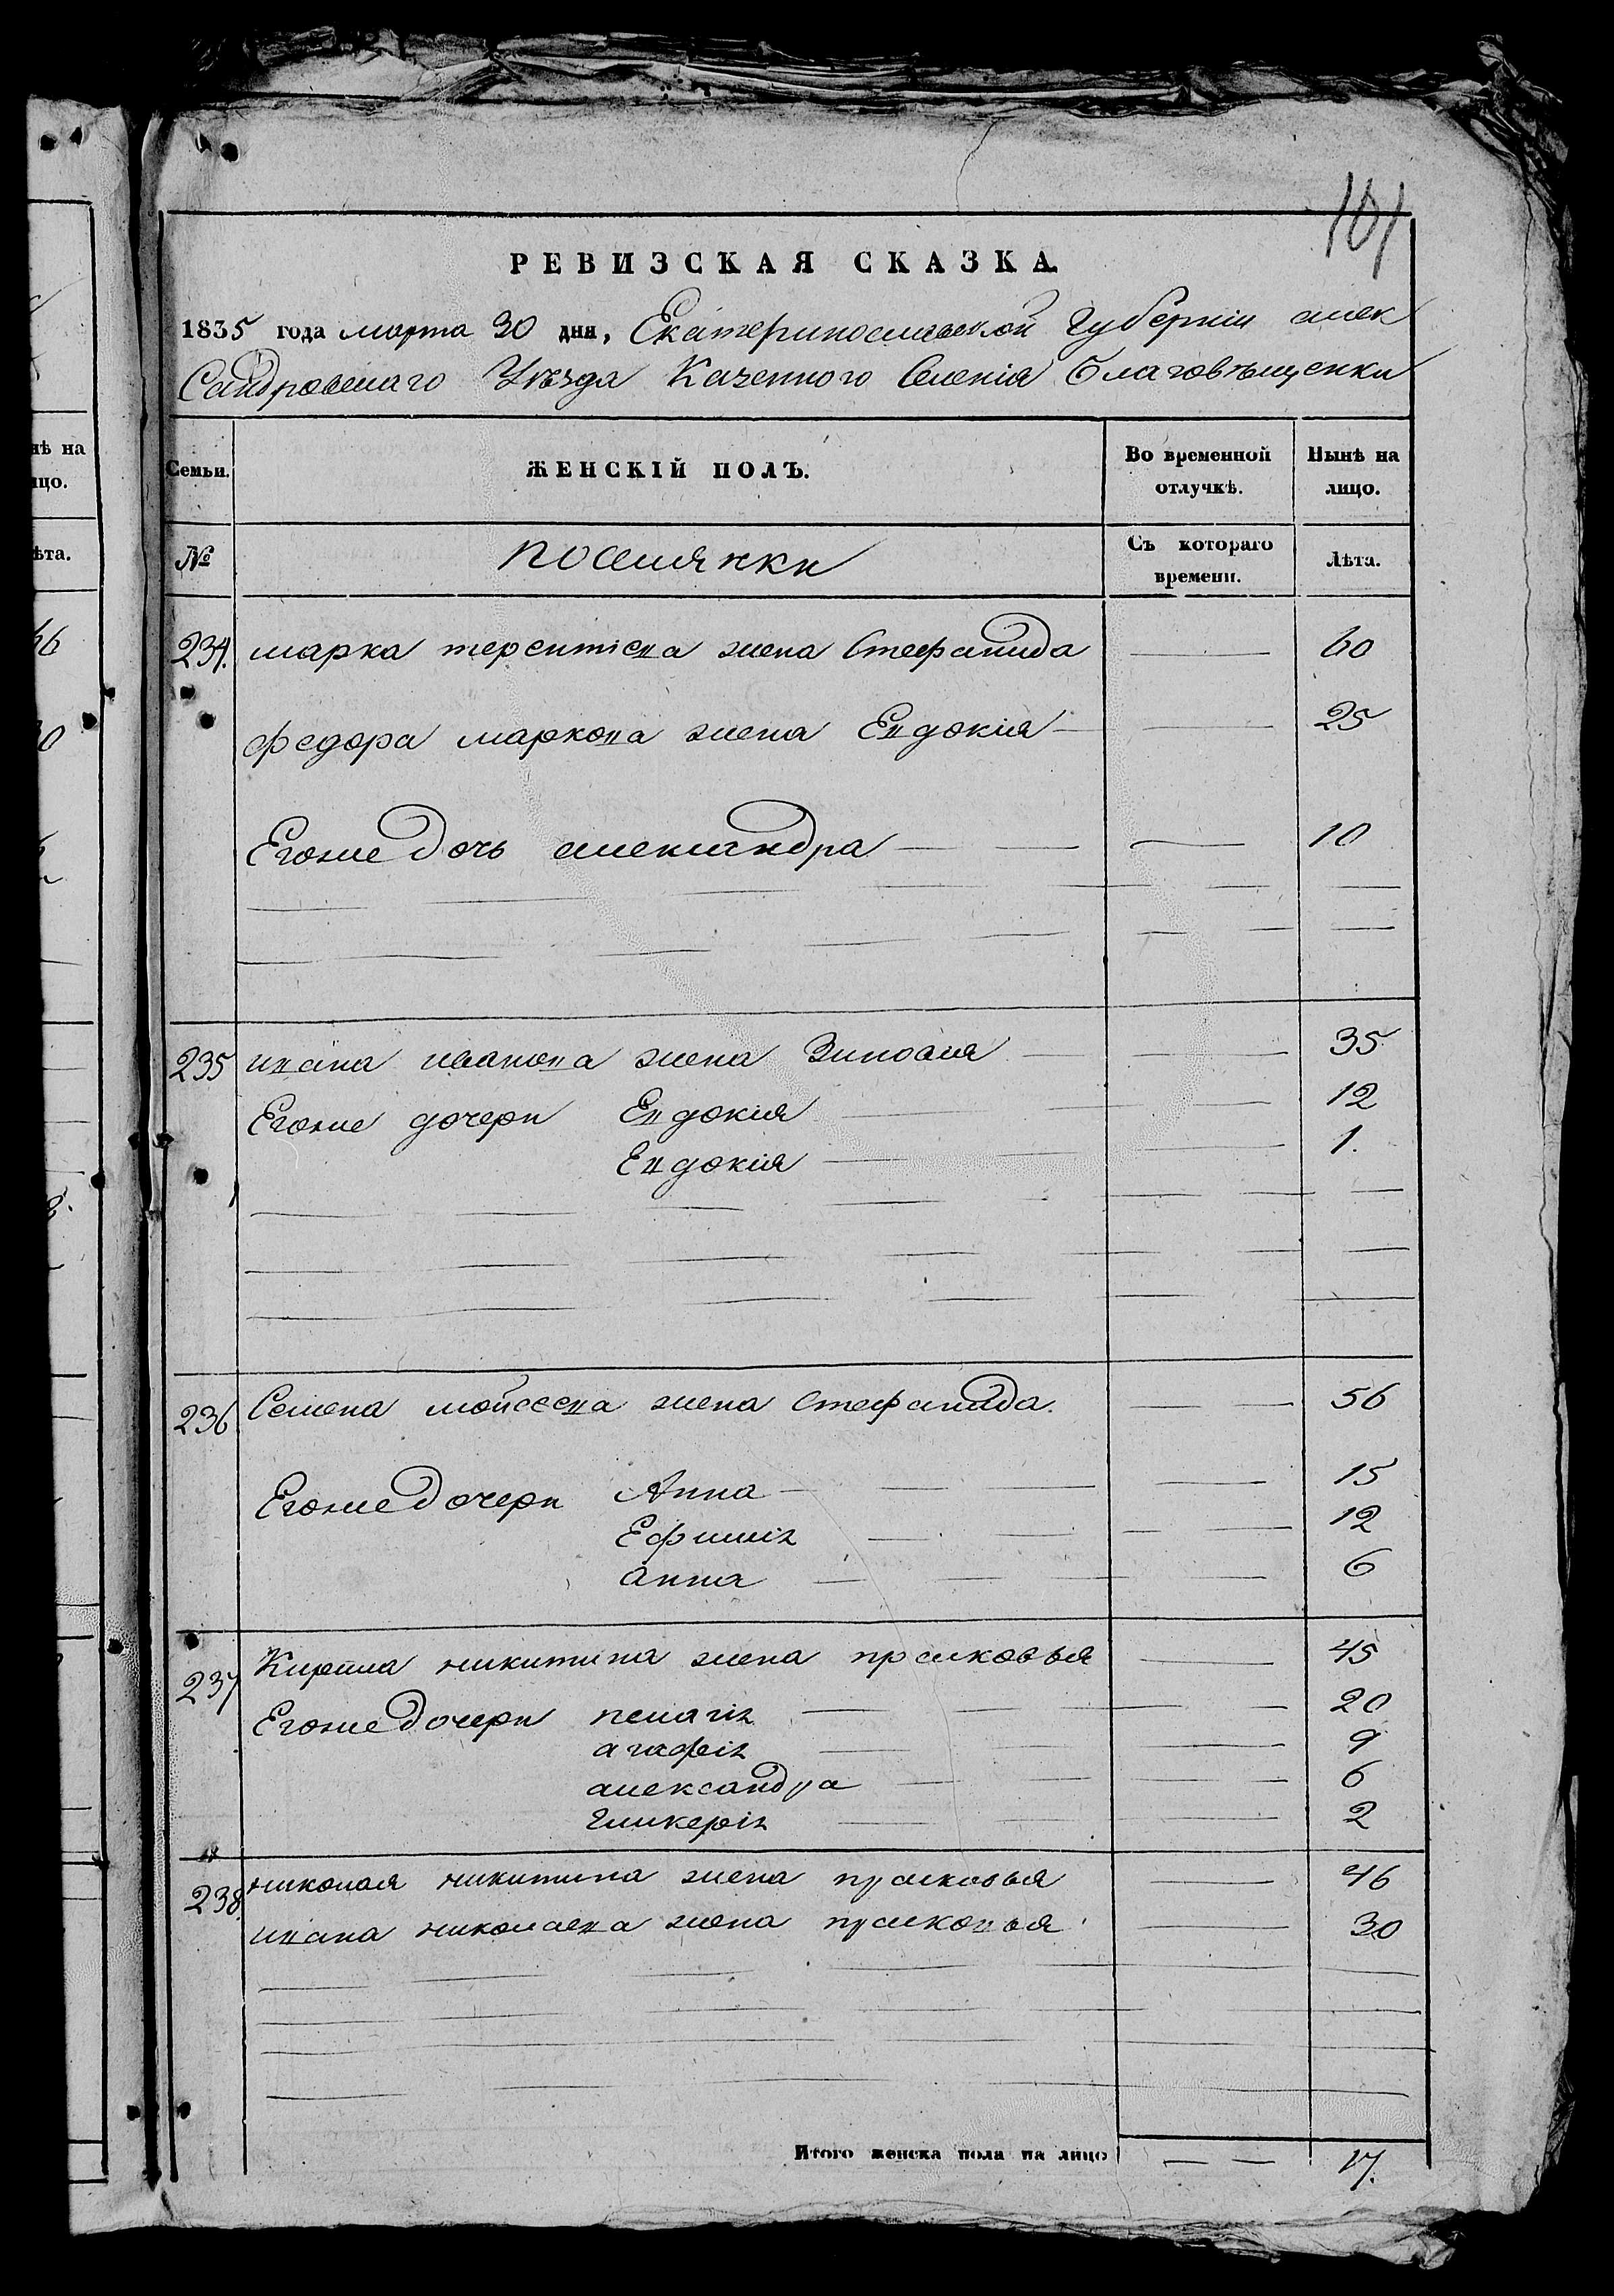 101
РЕВИЗСКАЯ СКАЗКА.
1835 года марта 30 дня, Екатеринославской Губерніи алек
Сандровскаго Уѣзда Казенного Селенія Благовѣщенки
Семьи. ЖЕНСКІЙ ПОЛЪ. Во временной отлучкѣ. Нынѣ на лицо.
№ поселянки Съ котораго времени. Лѣта.
234. марка терентіева жена Стефанида 60
федора маркова жена Евдокія 25
Егоже дочь александра 10
235 ивана иванова жена Зиновія 35
Егоже дочери Евдокія 12
Евдокія 1.
236 Семена мойсеева жена Стефанида. 56
Егоже дочери Анна 15
Ефимія 12
анна 6
237 Кирила никитина жена прасковья 45
Егоже дочери пелагія 20
агафія 9
александра 6
Гликерія 2
238. николая никитина жена прасковья 46
ивана николаева жена прасковья 30
Итого женска пола на лицо 17.
нѣ на
ицо.
ѣта.